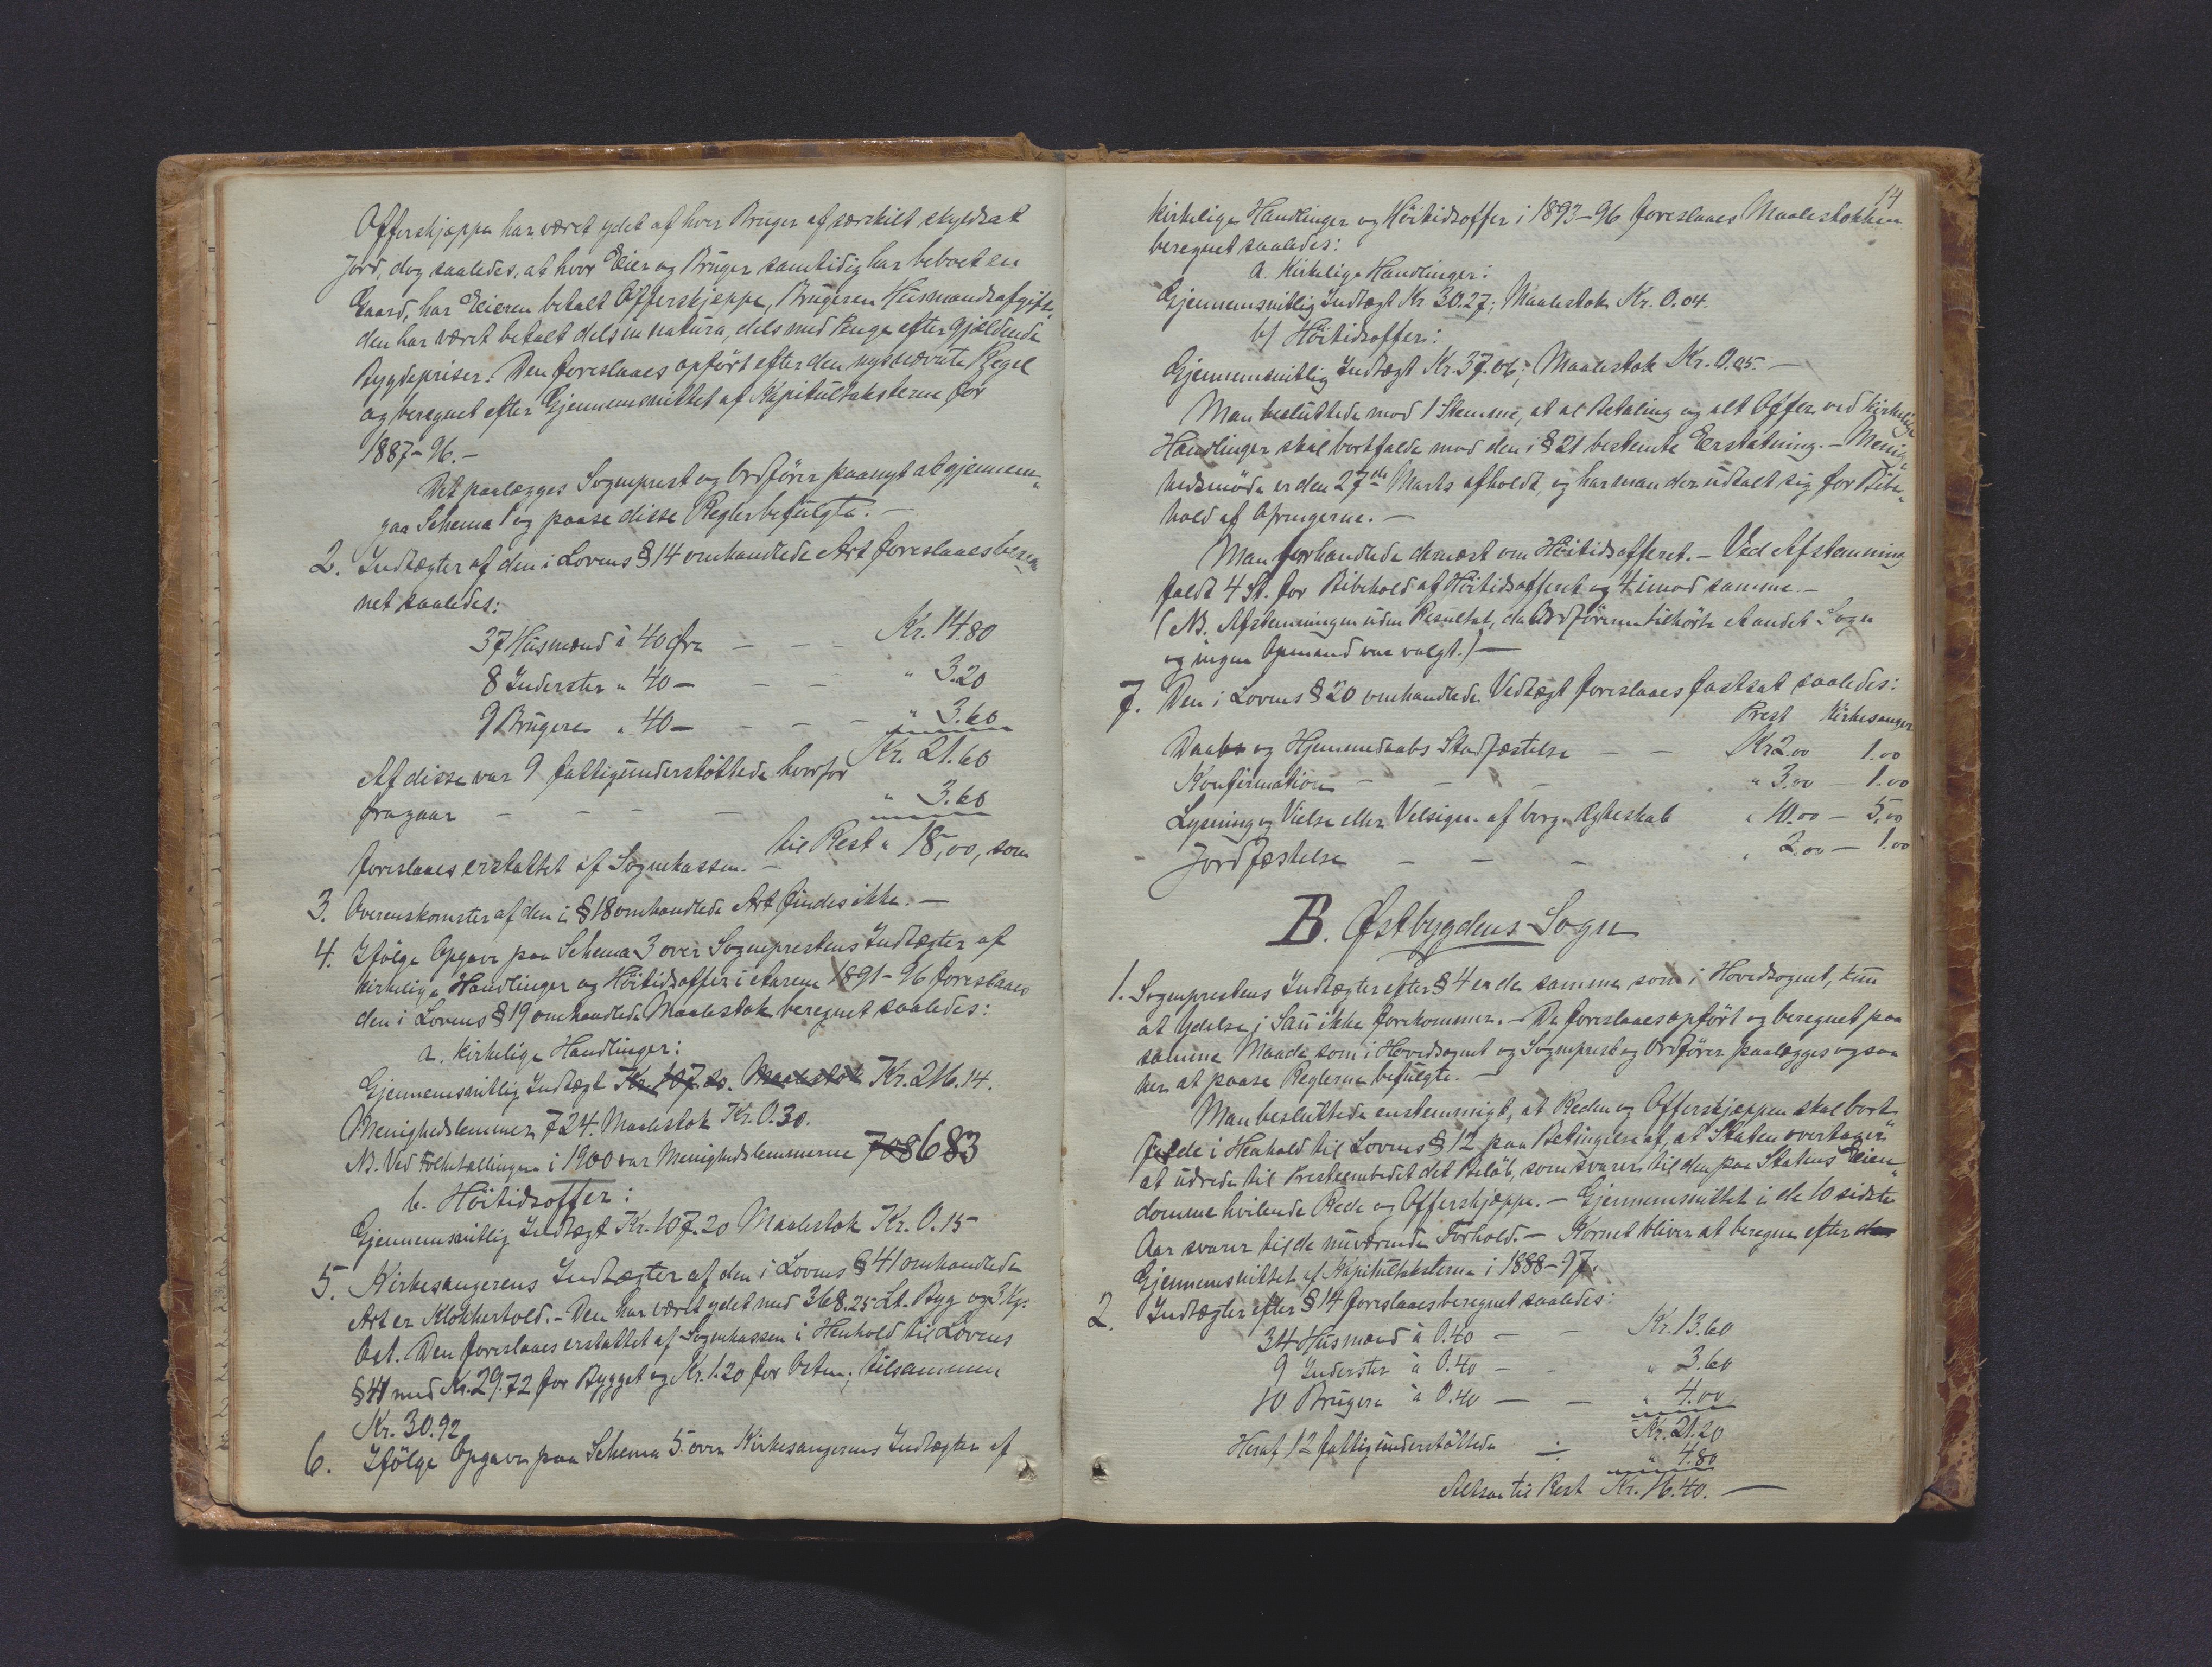 Offerskjæppe har været ydet af hver Bruger af særskilt skyldsat
Jord, dog saaledes, at hvor Eier og Bruger samtidig har beboet en
Gaard, har Eieren betalt Offerskjæppe, Brugeren Husmandsafgift,
den har været betalt dels in natura, dels med Penge efter gjældende
Bygdepriser. Den foreslaaes opført efter den nysnævnte Regel
og beregnet efter Gjennemsnittet af Kapitultaksterne for
1887-96.-
Det paalægges Sogneprest og Ordfører paanyt at gjennem-
gaa Schema 1 og paase disse Regler befulgte. -
2. Indtægter af den i Lovens § 14 omhandlede Art foreslaaes bereg
net saaledes:
37 Husmænd à 40 Øre - - - Kr. 14.80
8 Inderster " 40 - - - " 3.20
9 Brugere " 40 - - - - " 3.60
Kr. 21.60
Af disse var 9 fattigunderstøttede hvorfor
fragaar - - - " 3.60
til Rest " 18,00, som
foreslaaes erstattet af Sognekassen. -
3. Overenskomster af den i § 18 omhandlede Art findes ikke. -
4. Ifølge Opgave paa Schema 3 over Sogneprestens Indtægter af
kirkelige Handlinger og Høitidsoffer i Aarene 1891-96 foreslaaes
den i Lovens § 19 omhandlede Maalestok beregnet saaledes:
a. Kirkelige Handlinger:
Gjennemsnitlig Indtægt Kr. 107.20. Maalestok Kr. 216.14.
Menighedslemmer 724. Maalestok Kr. 0.30.
NB. Ved Folketællingen i 1900 var Menighedslemmerne 708 683
b. Høitidsoffer:
Gjennemsnitlig Indtægt Kr. 107.20 Maalestok Kr. 0.15
5. Kirkesangerens Indtægter af den i Lovens § 41 omhandlede
Art er Klokkertold. - Den har været ydet med 368.25 Lt. Byg og 3 Kg.
Ost. Den foreslaaes erstattet af Sognekassen i Henhold til Lovens
§ 41 med Kr. 29.72 for Bygget og Kr. 1.20 for Osten; tilsammen
Kr. 30.92
6. Ifølge Opgave paa Schema 5 over Kirkesangerens Indtægter af
14
kirkelige Handlinger og Høitidsoffer i 1893-96 foreslaaes Maalestokken
beregnet saaledes:
a. Kirkelige Handlinger:
Gjennemsnitlig Indtægt Kr 30.27; Maalestok Kr. 0.04.
b/ Høitidsoffer:
Gjennemsnitlig Indtægt Kr. 37.06; Maalestok Kr. 0.05. -
Man besluttede mod 1 Stemme, at al Betaling og alt Offer ved kirkelige
Handlinger skal bortfalde mod den i § 21 bestemte Erstatning. - Menig-
hedsmøde er den 27de Marts afholdt, og har man der udtalt sig for Bibe-
hold af Ofringerne. -
Man forhandlede dernæst om Høitidsofferet. - Ved Afstemning
faldt 4 St. for Bibehold af Høitidsofferet og 4 imod samme. -
(NB. Afstemningen uden Resultat, da Ordføreren tilhørte et andet Sogn
og ingen Opmand var valgt.) -
7. Den i Lovens § 20 omhandlede Vedtægt foreslaaes fastsat saaledes:
Prest Kirkesanger
Daabs og Hjemmedaabs Stadfæstelse - - Kr 2.00 1.00
Konfirmation - - - " 3.00 - 1.00
Lysning og Vielse eller Velsign. af borg. Ægteskab " 10.00 - 5,00
Jordfæstelse - - - " 2.00 - 1.00
B. Østbygdens Sogn
1. Sogneprestens Indtægter efter § 4 er de samme som i Hovedsognet, kun
at Ydelse i Sau ikke forekommer. - De foreslaaes opført og beregnet paa
samme Maade som i Hovedsognet og Sogneprest og Ordfører paalægges ogsaa
her at paase Reglerne befulgte. -
Man besluttede enstemmigt, at Reden og Offerskjæppen skal bort
falde i Henhold til Lovens § 12 paa Betingelse af, at Staten overtager
at udrede til Presteembedet det Beløb, som svarer til den paa Statens Eien-
domme hvilende Rede og Offerskjæppe. - Gjennemsnittet i de 10 sidste
Aar svarer til de nuværende Forhold. - Kornet bliver at beregne efter den
Gjennemsnittet af Kapitultaksterne i 1888-97.
2. Indtægter efter § 14 foreslaaes beregnet saaledes:
34 Husmænd à 0.40 - - Kr. 13.60
9 Inderster à 0.40 - " 3.60
10 Brugere à 0.40 - - " 4.00
Kr. 21.20
Heraf 12 fattigunderstøttede ÷ " 4.80
Altsaa til Rest Kr. 16.40. -